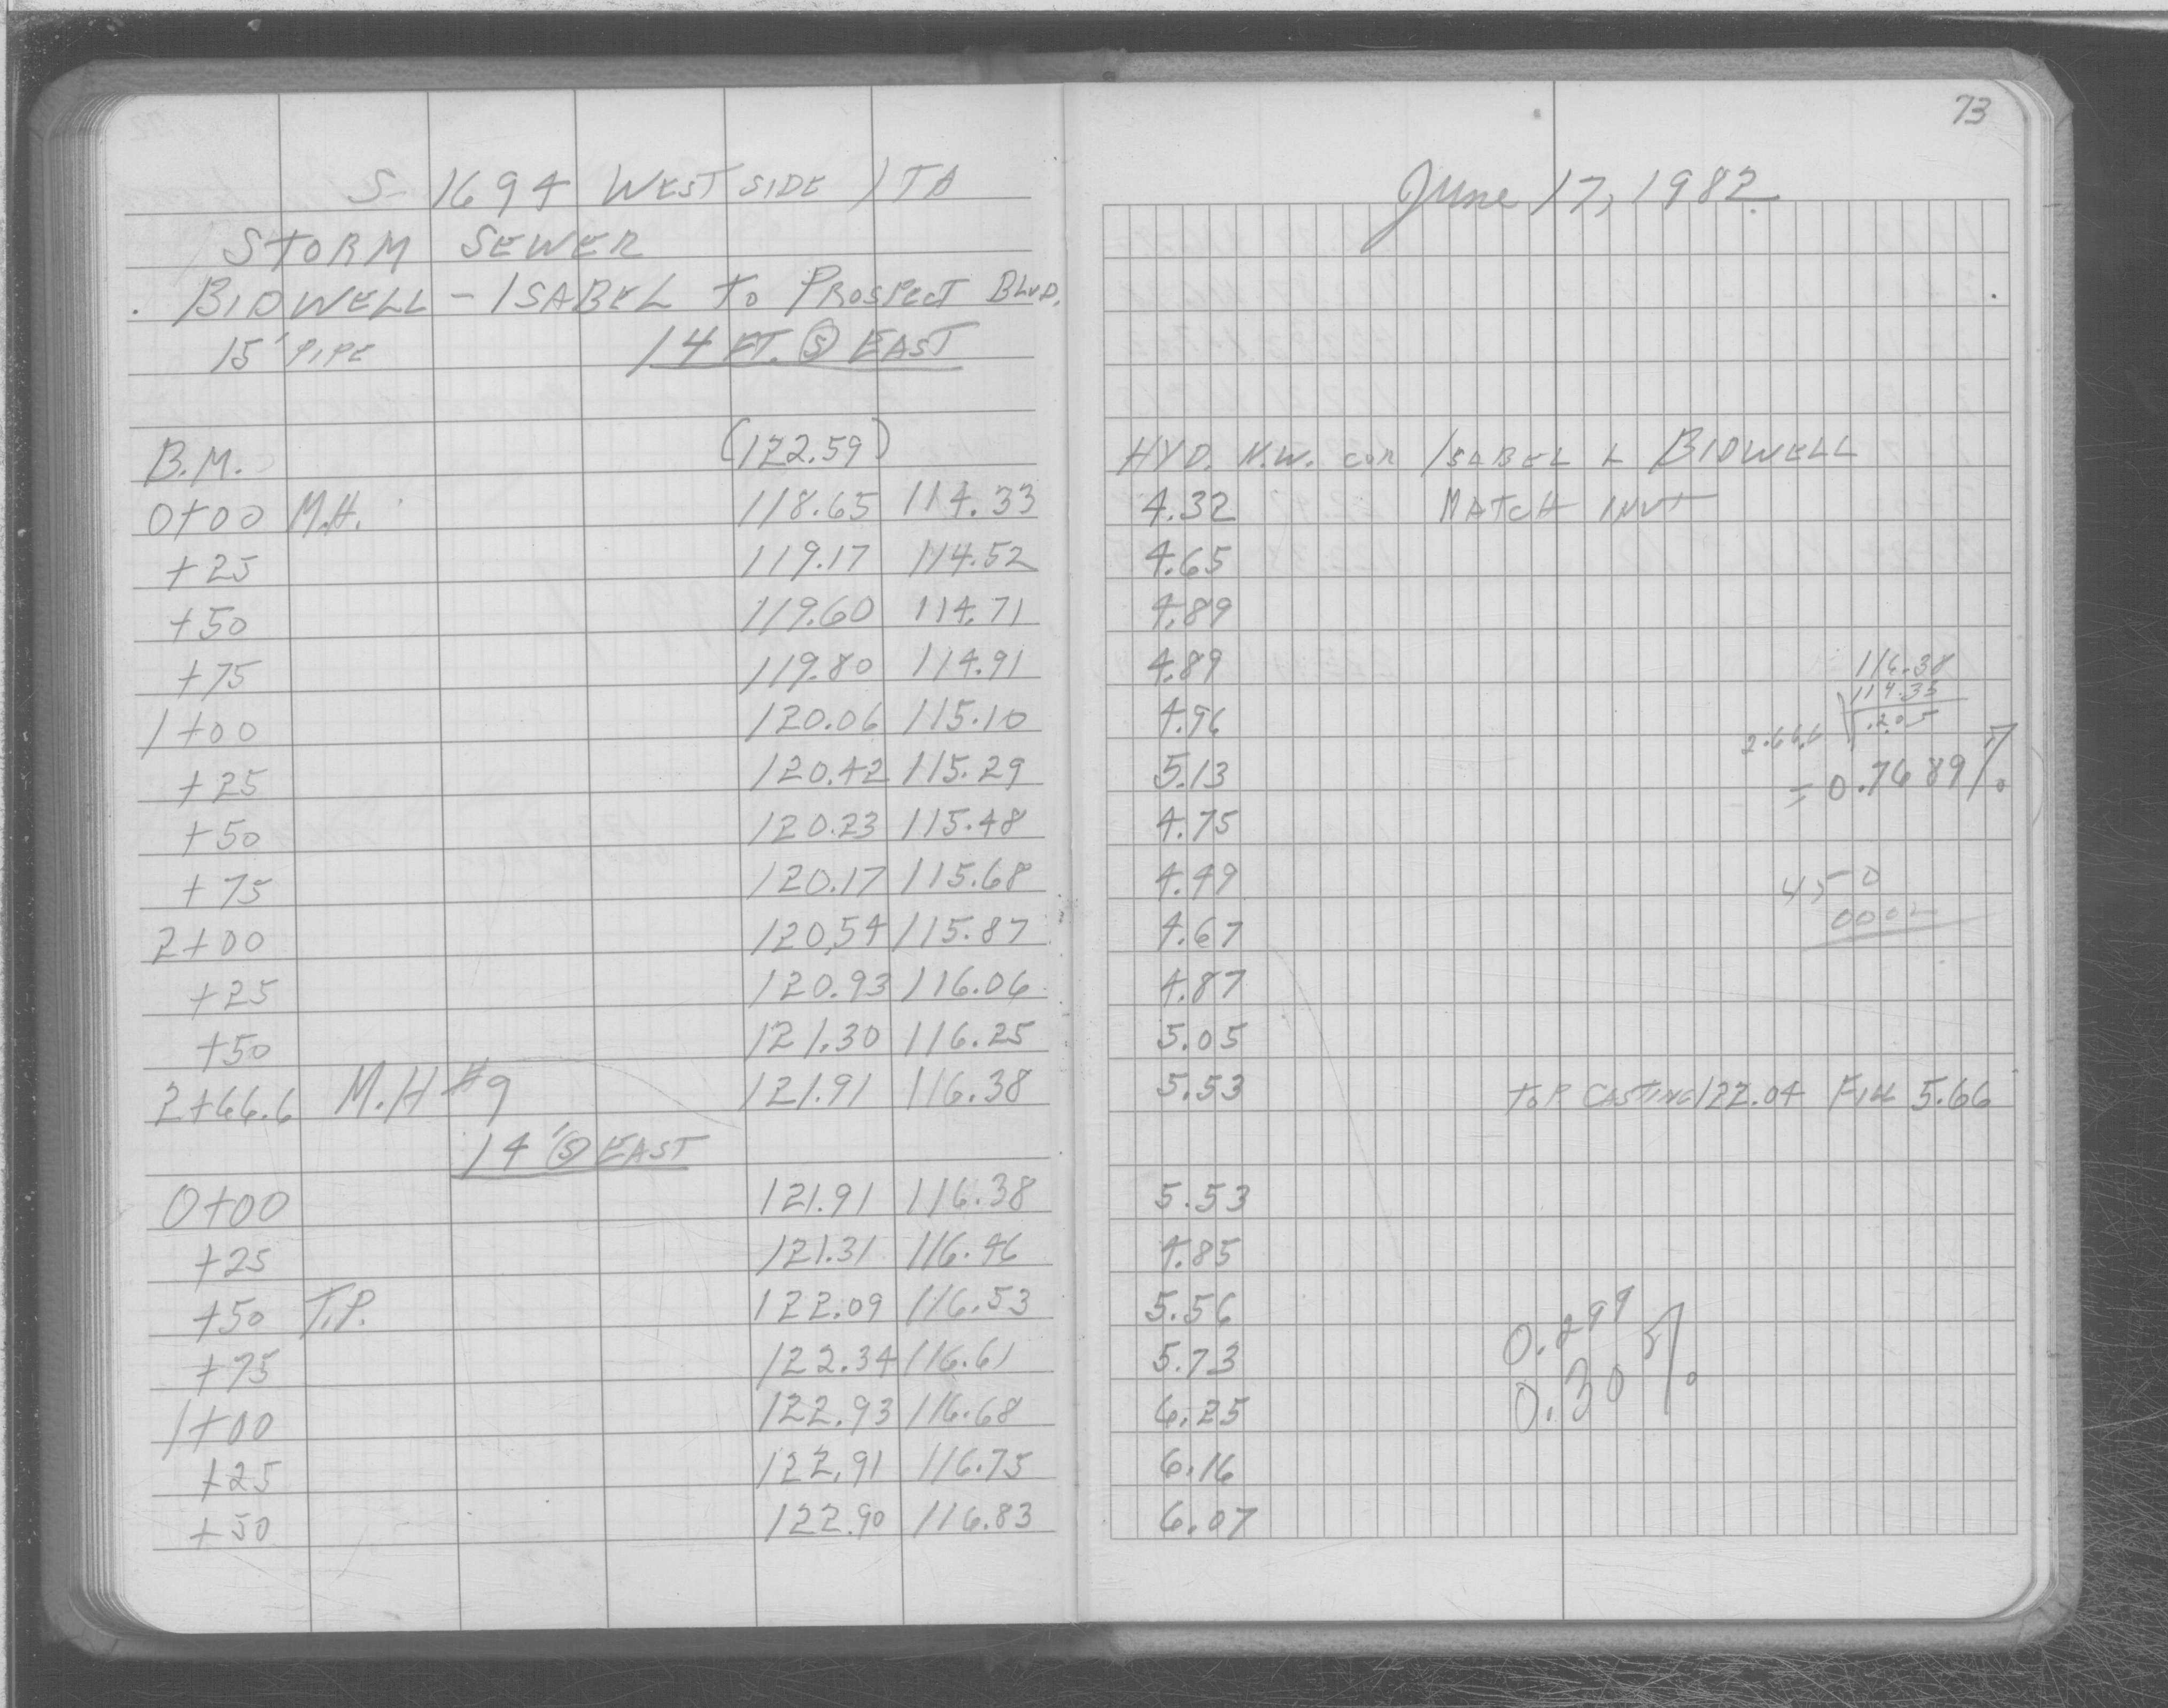 73
S-1694 WEST SIDE ITA
June 17, 1982
STORM SEWER
BIDWELL - ISABEL TO PROSPECT BLVD.
15' PIPE 14 FT. (S) EAST
B.M. (122.59) HYD. N.W. COR ISABEL & BIDWELL
0+00 M.H. 118.65 114.33 4.32 MATCH INVT
+25 119.17 114.52 4.65
+50 119.60 114.71 4.89
+75 119.80 114.91 4.89
116.38
114.33
1+00 120.06 115.10 4.96
2.666 .205
+25 120.42 115.29 5.13
= 0.7689%
+50 120.23 115.48 4.75
+75 120.17 115.68 4.49
450
2+00 120.54 115.87 4.67
+25 120.93 116.06 4.87
+50 121.30 116.25 5.05
2+66.6 M.H #9 121.91 116.38 5.53 TOP CASTING 122.04 FILL 5.66
14' (S) EAST
0+00 121.91 116.38 5.53
+25 121.31 116.46 4.85
+50 T.P. 122.09 116.53 5.56
0.299
+75 122.34 116.61 5.73
0.30%
1+00 122.93 116.68 6.25
+25 122.91 116.75 6.16
+50 122.90 116.83 6.07